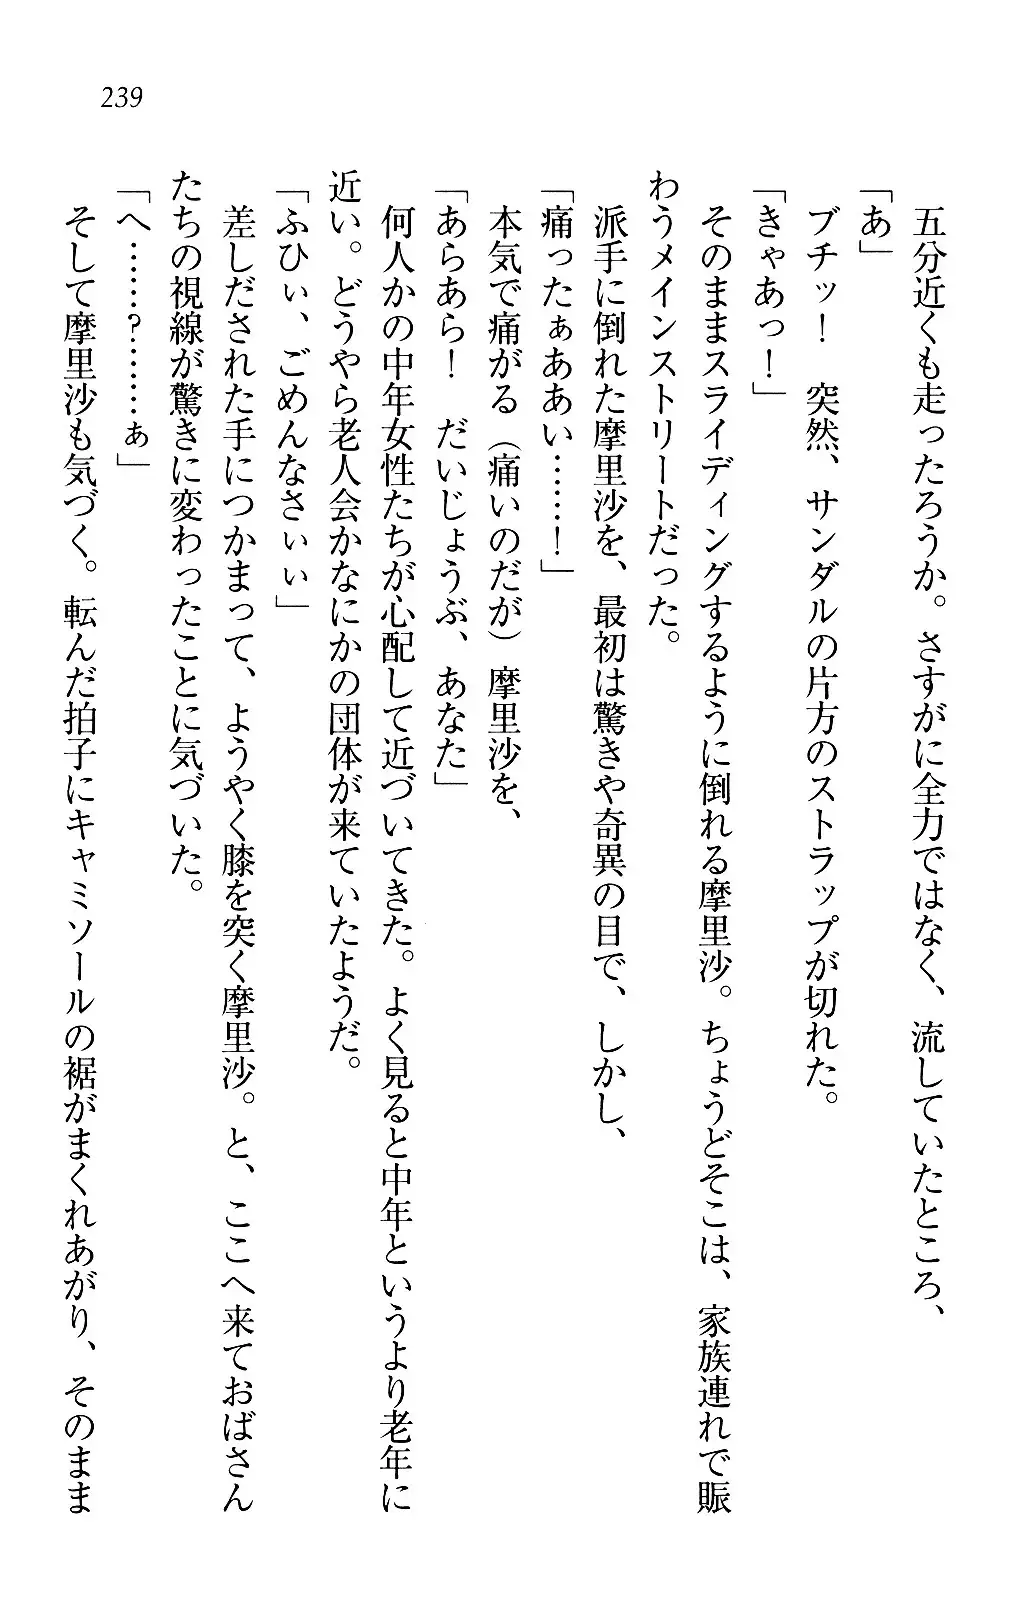 239
　五分近くも走ったろうか。さすがに全力ではなく、流していたところ、
「あ」
　ブチッ！　突然、サンダルの片方のストラップが切れた。
「きゃあっ！」
　そのままスライディングするように倒れる摩里沙。ちょうどそこは、家族連れで賑
わうメインストリートだった。
　派手に倒れた摩里沙を、最初は驚きや奇異の目で、しかし、
「痛ったぁああい……！」
　本気で痛がる（痛いのだが）摩里沙を、
「あらあら！　だいじょうぶ、あなた」
　何人かの中年女性たちが心配して近づいてきた。よく見ると中年というより老年に
近い。どうやら老人会かなにかの団体が来ていたようだ。
「ふひぃ、ごめんなさぃぃ」
　差しだされた手につかまって、ようやく膝を突く摩里沙。と、ここへ来ておばさん
たちの視線が驚きに変わったことに気づいた。
「へ………？………ぁ」
　そして摩里沙も気づく。転んだ拍子にキャミソールの裾がまくれあがり、そのまま